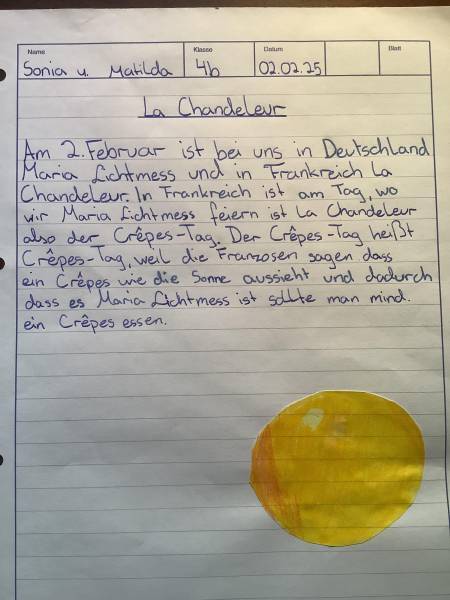 Name
Klasse
Datum
Blatt
Sonia u. Matilda
4b
02.02.25
La Chandeleur
Am 2. Februar ist bei uns in Deutschland
Maria Lichtmess und in Frankreich La
Chandeleur. In Frankreich ist am Tag, wo
wir Maria Lichtmess feiern ist La Chandeleur
also der Crêpes-Tag. Der Crêpes-Tag heißt
Crêpes-Tag, weil die Franzosen sagen dass
ein Crêpes wie die Sonne aussieht und dadurch
dass es Maria Lichtmess ist sollte man mind.
ein Crêpes essen.